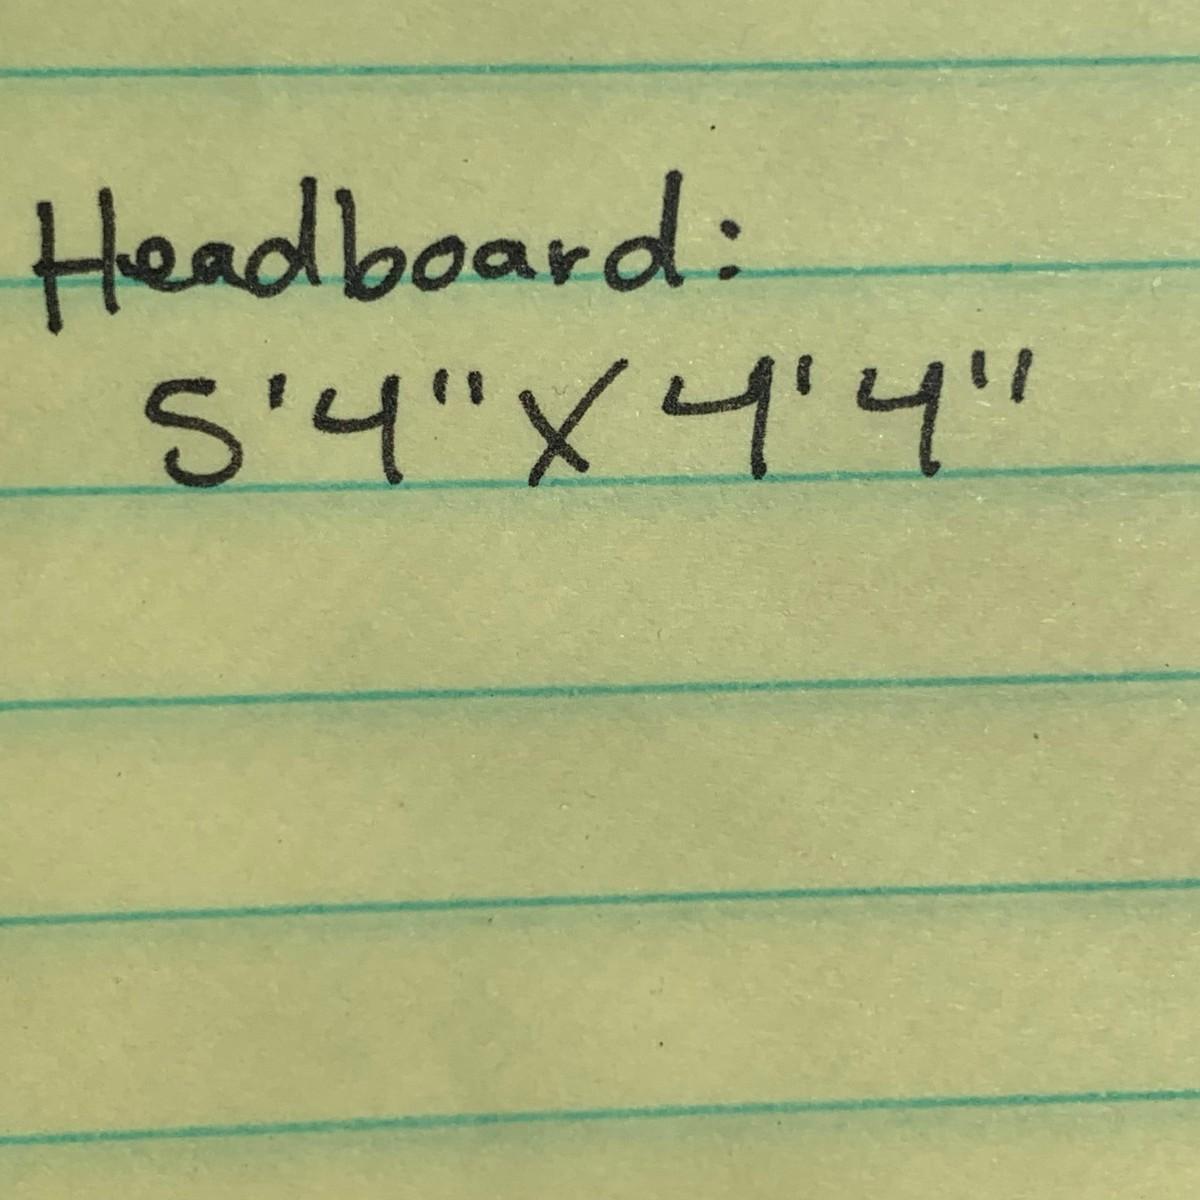 Headboard:
5'4" X 4'4"